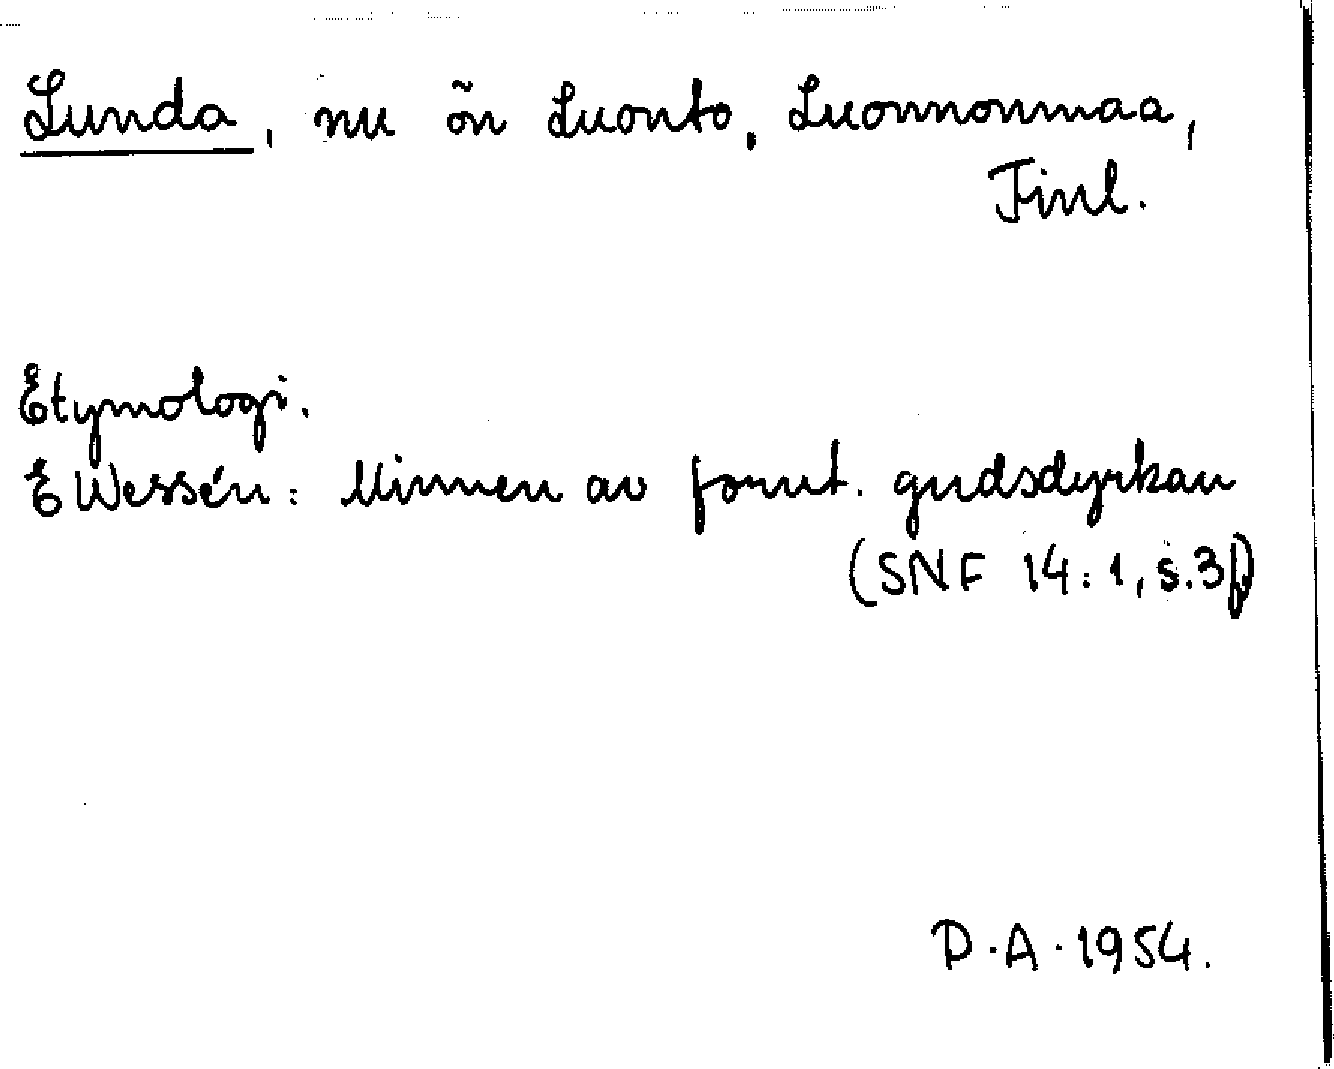 Lunda, nu ön Luonto, Luonnonmaa,
Finl.
Etymologi.
E Wessén: Minnen av fornt. gudsdyrkan
(SNF 14:1, s.3f)
D.A.1954.